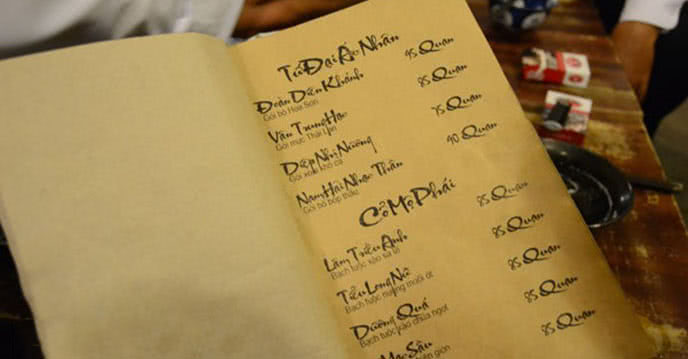 Tứ Đại Ác Nhân
Đoàn Diên Khánh Quan
Gỏi bò Hoa Sơn
Vân Trung Hạc 85 Quan
Gỏi mực Thái Lan
Diệp Nhị Nương 75 Quan
Gỏi xoài khô cá
Nam Hải Ngạc Thần Quan
Gỏi bò bóp thấu
Cổ Mộ Phái
85 Quan
Lâm Triều Anh 85 Quan
Bạch tuộc xào sa tế
Tiểu Long Nữ 85 Quan
Bạch tuộc nướng muối ớt
Dương Quá 85 Quan
Bạch tuộc xào chua ngọt
Mạc Sầu 85 Quan
giòn